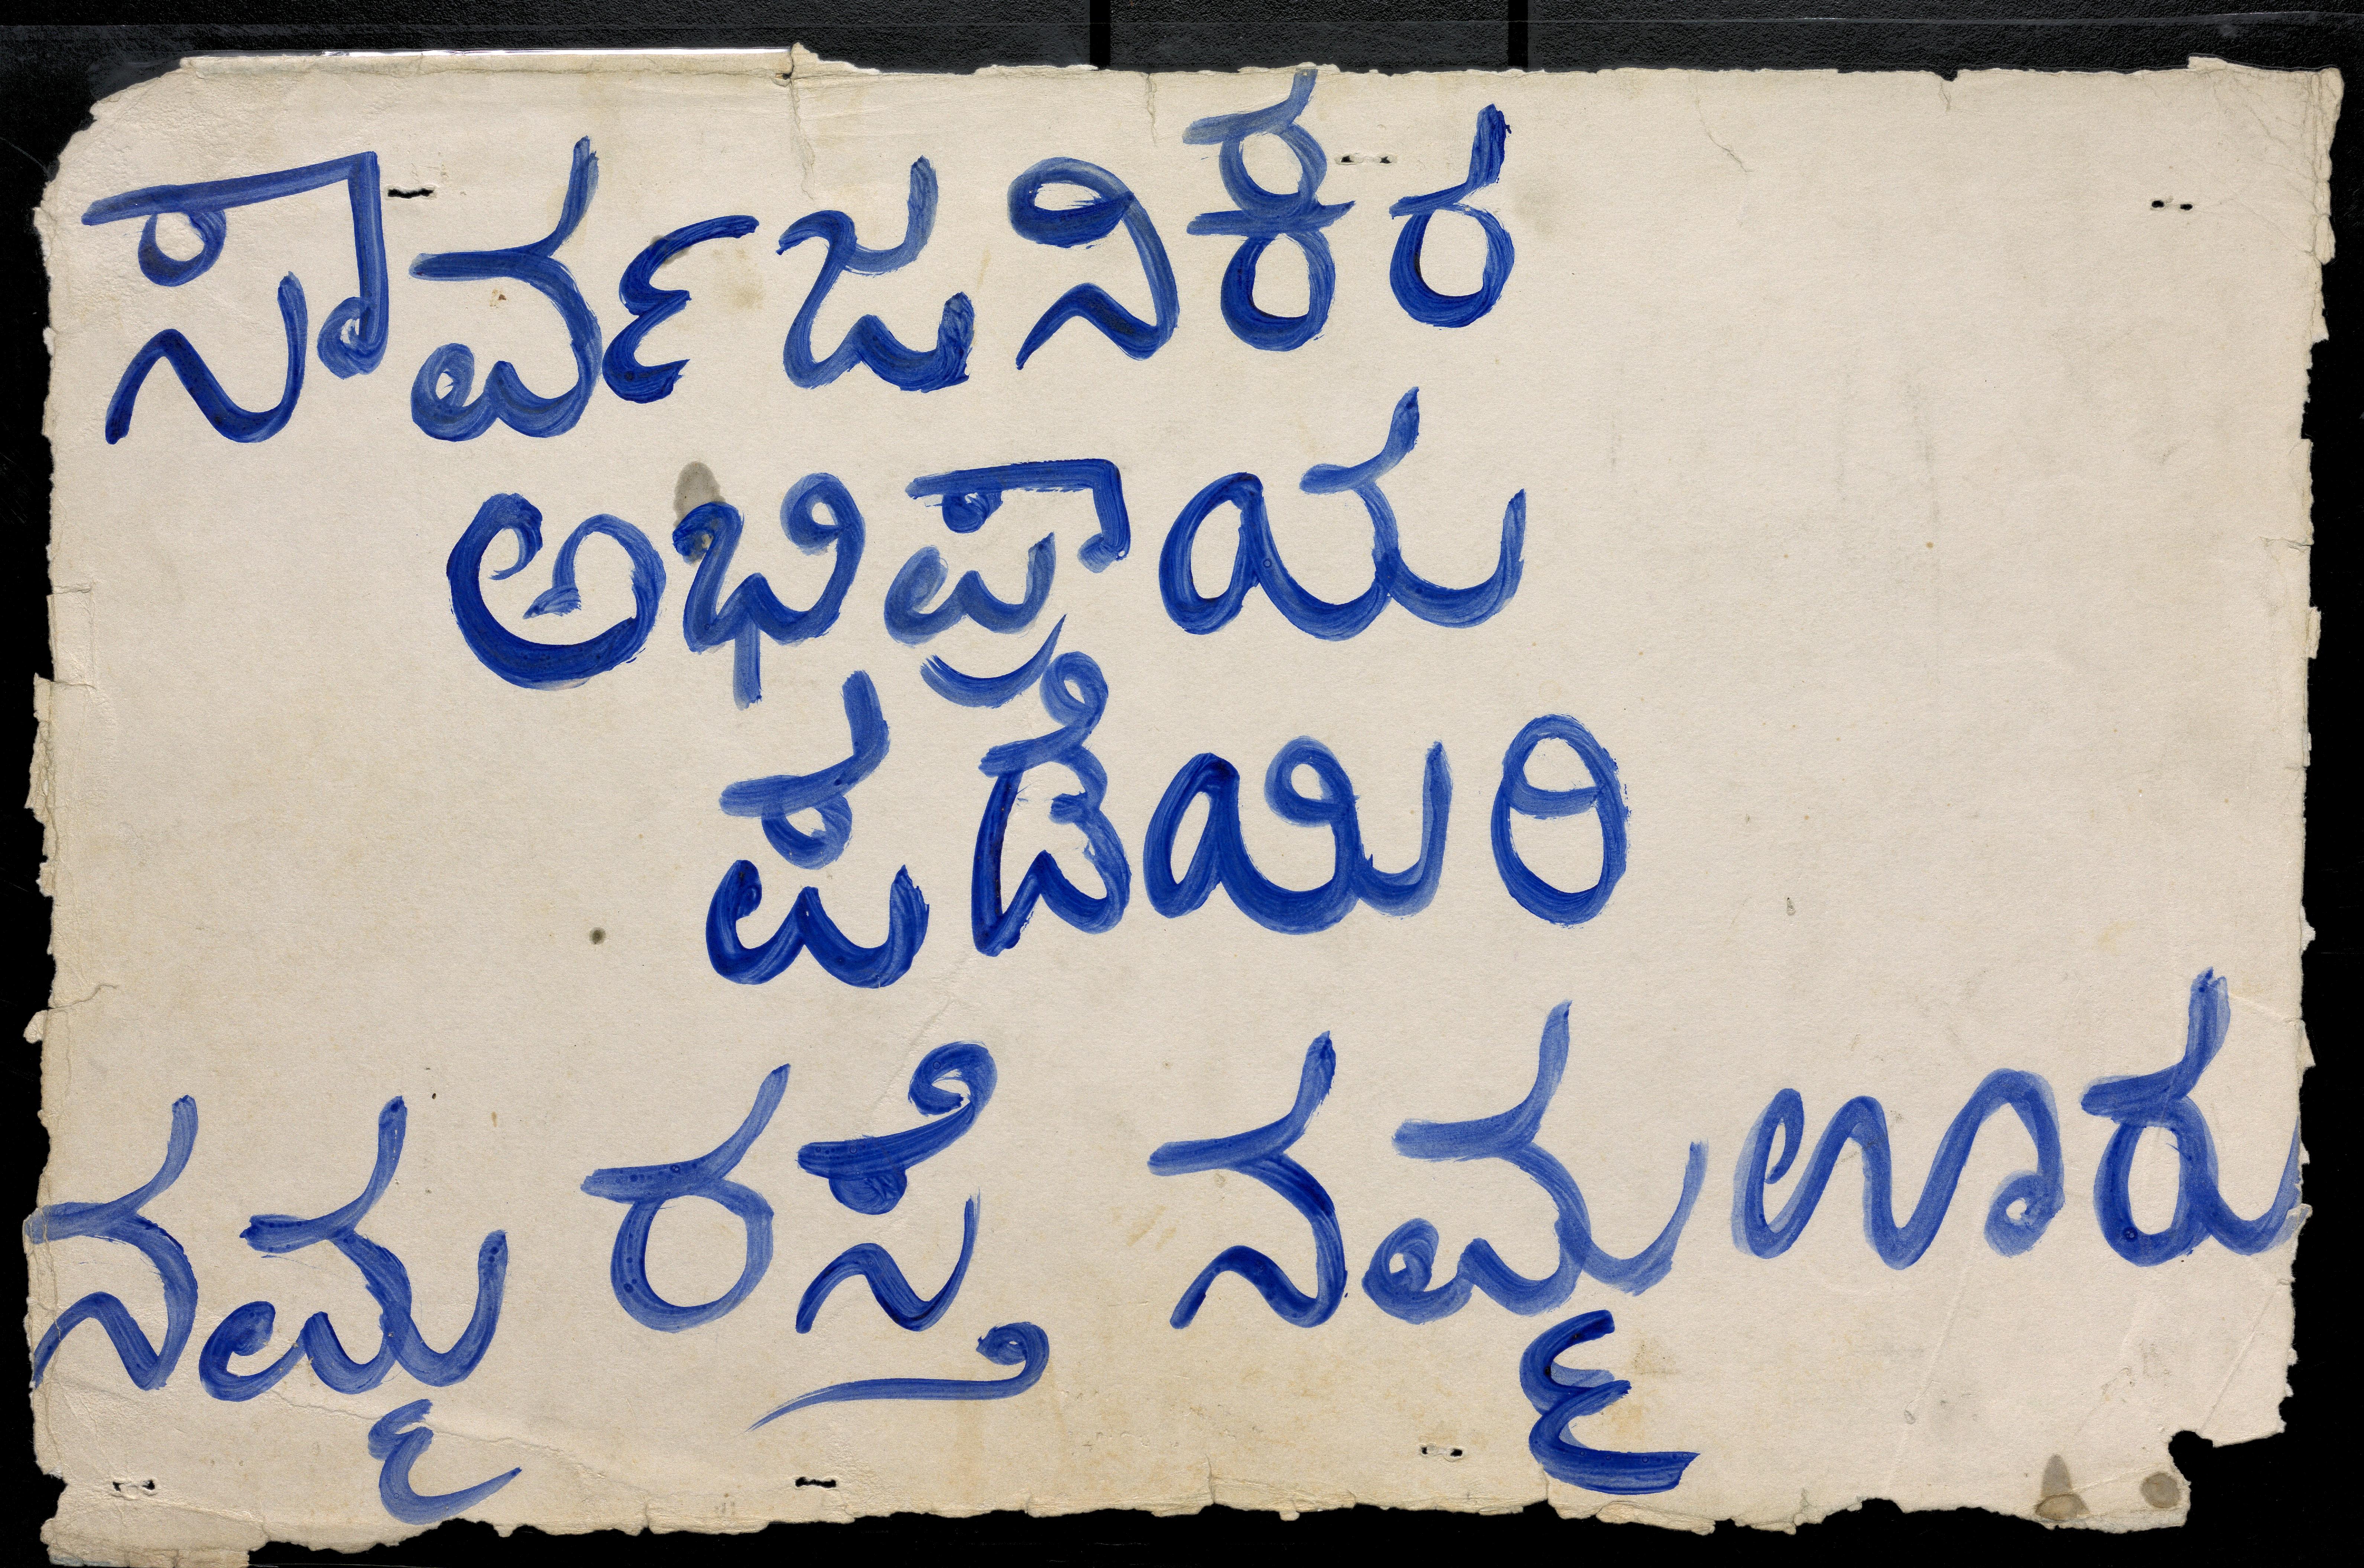 ಸಾರ್ವಜನಿಕರ
ಅಭಿಪ್ರಾಯ
ಪಡೆಯಿರಿ
ನಮ್ಮ ರಸ್ತೆ ನಮ್ಮ ಊರು